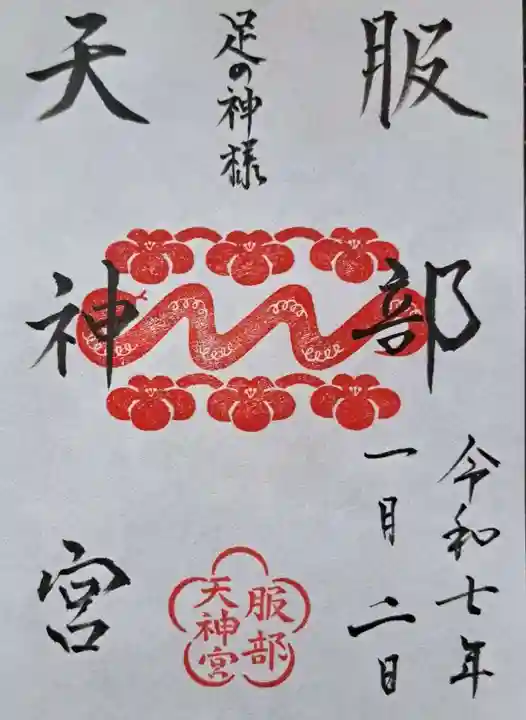 服部
足の神様
天神宮
令和七年
一月二日
服部
天神宮